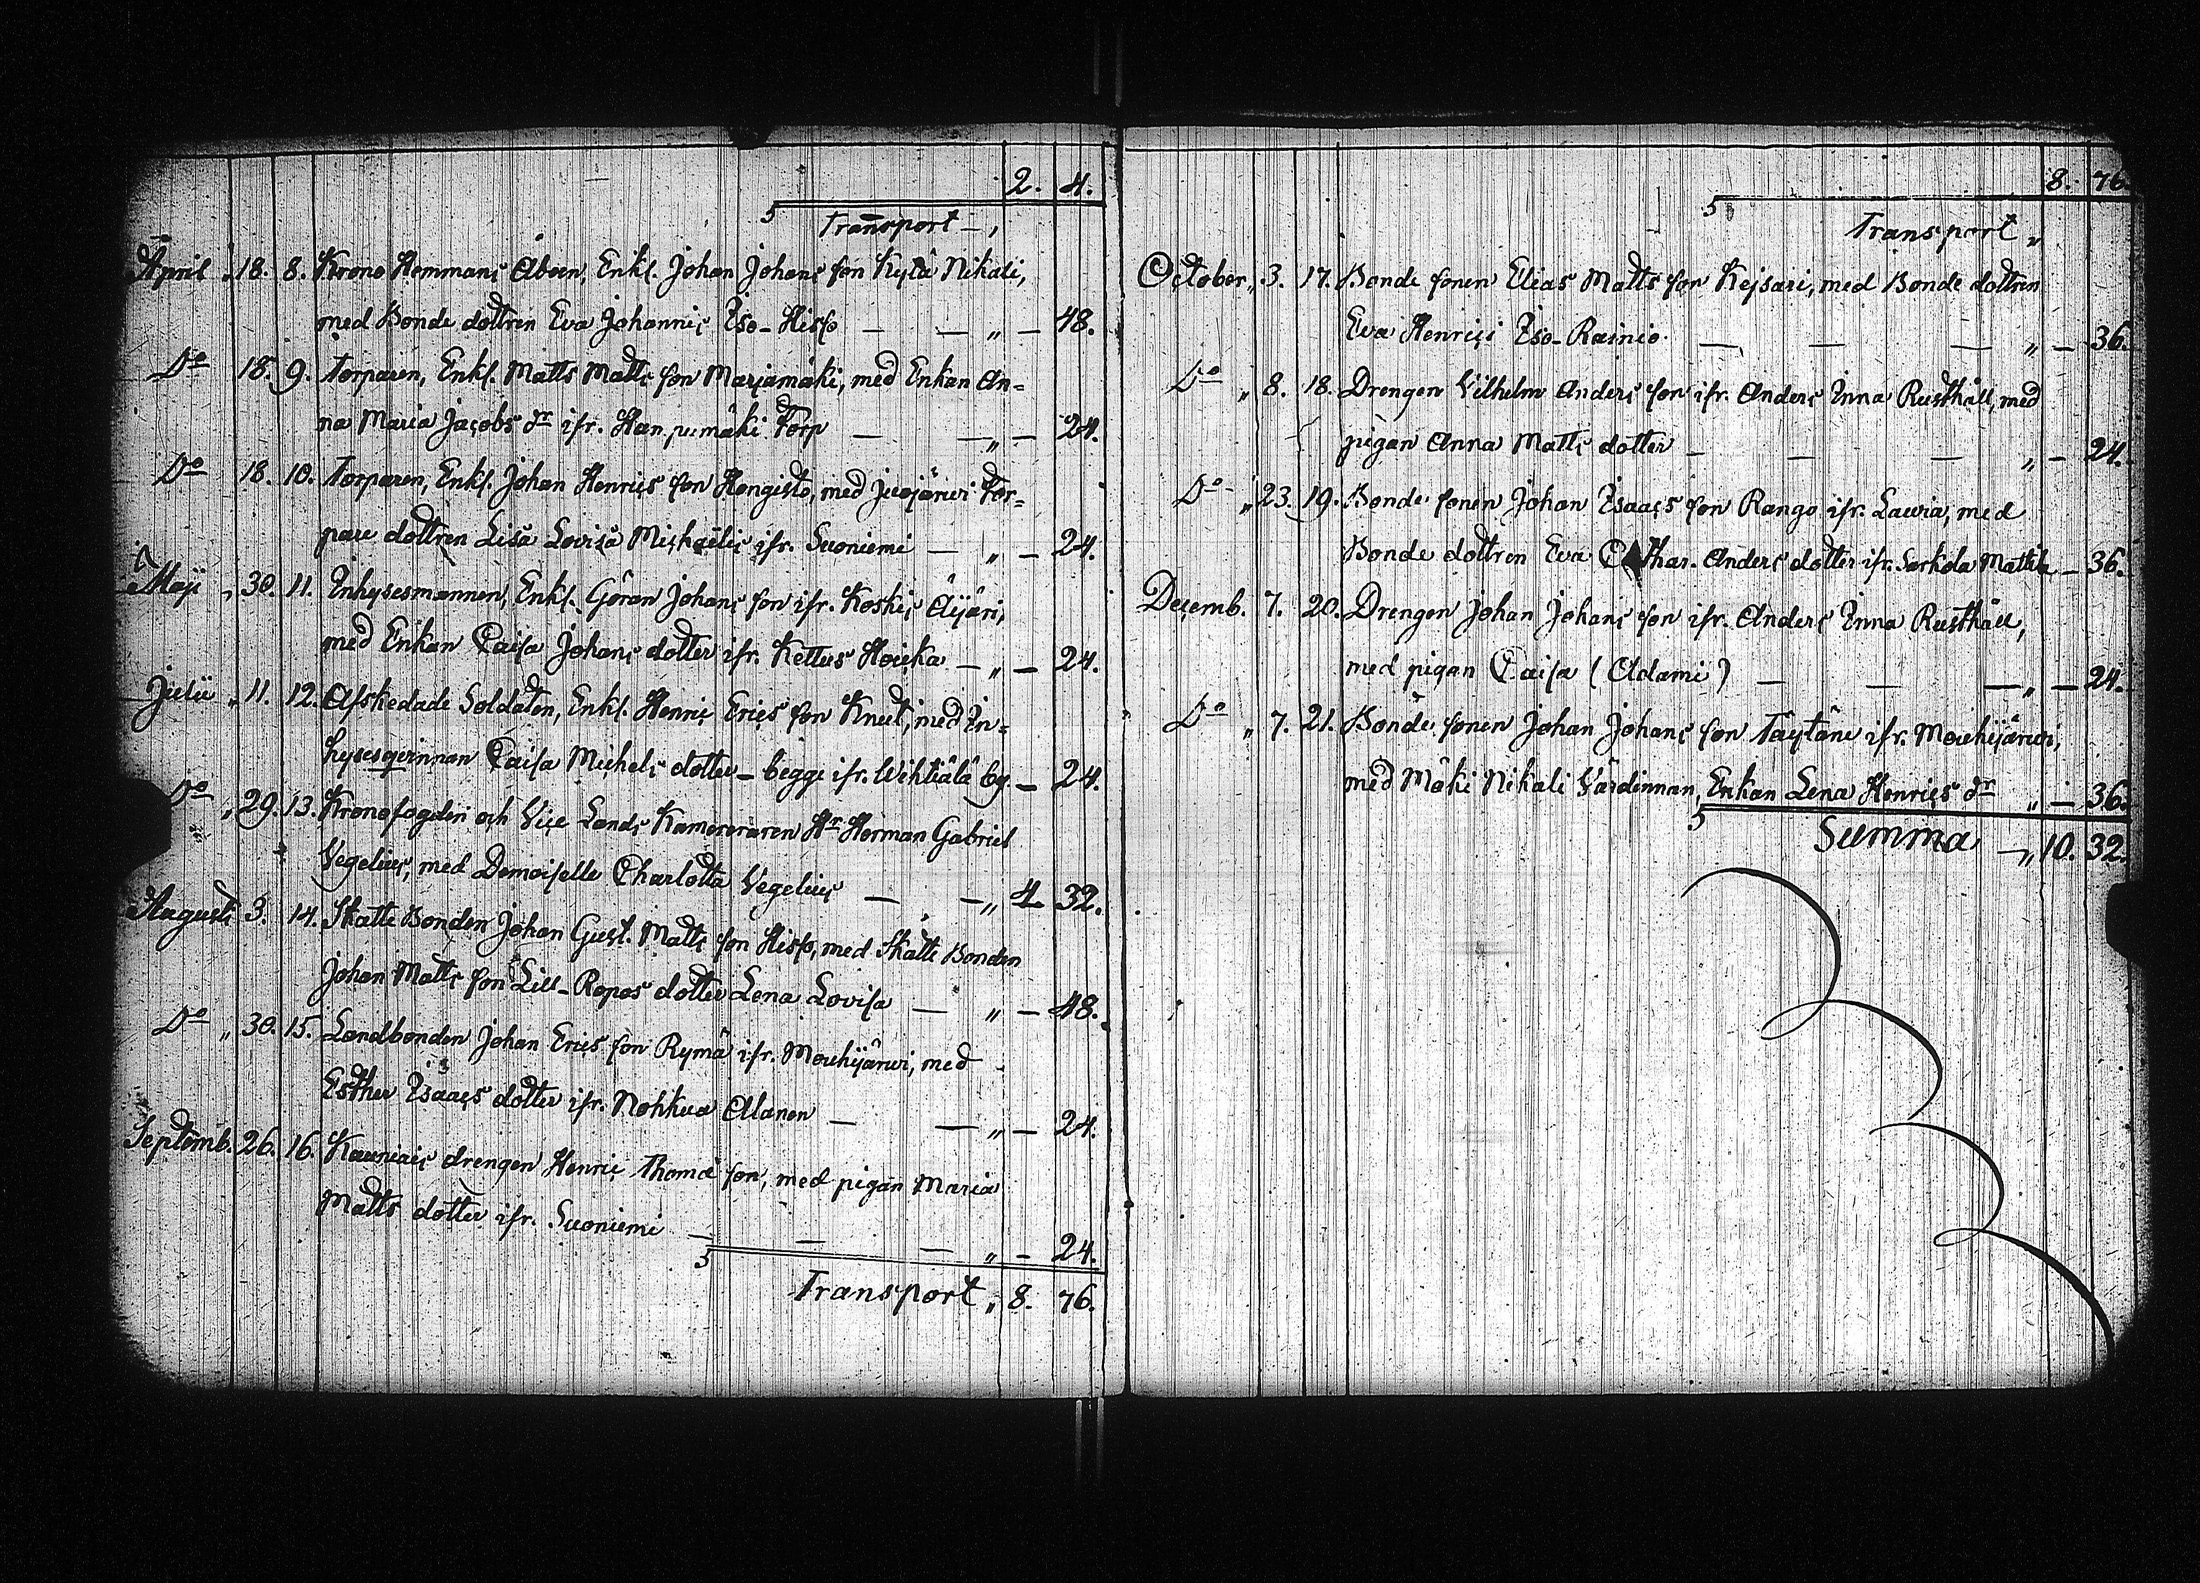 2. 4.
Transport — „
April „ 18. 8. Krono Hemmans Åboen, Enkl. Johan Johans son Kylä Nikali,
med Bonde dottren Eva Johannis Iso-Hiss — — „ — 48.
Do 18. 9. Torparen, Enkl. Matts Matts son Marjamäki, med Enkan An=
na Maria Jacobs dr ifr. Hanjumäki Torp — — „ — 24.
Do 18. 10. Torparen, Enkl. Johan Henrics son Hongisto, med Jusojärwi Tor=
pare dottren Lisa Lovisa Michaëlis ifr. Suoniemi — „ — 24.
Maji „ 30. 11. Inhysesmannen, Enkl. Göran Johans son ifr. Koskis Äijäri,
med Enkan Caisa Johans dotter ifr. Kettus Houka — „ — 24.
Julii „ 11. 12. Afskedade Soldaten, Enkl. Henric Erics son Knut, med In=
hysesqvinnan Caisa Michels dotter — begge ifr. Wehtiälä by. — 24.
Do „ 29. 13. Kronofogden och Vice Lands Kamereraren Hr Herman Gabriel
Vegelius, med Demoiselle Charlotta Vegelius — — „ 4 32.
Augusti 3. 14. Skatte Bonden Johan Gust. Matts son Hiss, med Skatte Bonden
Johan Matts son Lill-Ropos dotter Lena Lovisa — „ — 48.
Do „ 30. 15. Landbonden Johan Erics son Rymä ifr. Mouhijärwi, med
Esther Isaacs dotter ifr. Nohkua Alanen — — „ — 24.
Septemb. 26. 16. Kauniais drengen Henric Thomæ son, med pigan Maria
Matts dotter ifr. Suoniemi — — — „ — 24.
Transport „ 8. 76.
8. 76.
Transport „
October „ 3. 17. Bonde sonen Elias Matts son Kejsari, med Bonde dottren
Eva Henrici Iso-Rainio — — — „ — 36.
Do „ 8. 18. Drengen Vilhelm Anders son ifr. Anders Inna Rusthåll, med
pigan Anna Matts dotter — — — „ — 24.
Do „ 23. 19. Bonde sonen Johan Isaacs son Rango ifr. Lauria, med
Bonde dottren Eva Cathar. Anders dotter ifr. Sarkola Mattila — 36.
Decemb. 7. 20. Drengen Johan Johans son ifr. Anders Inna Rusthåll,
med pigan Caisa (Adami) — — — „ — 24.
Do „ 7. 21. Bonde sonen Johan Johans son Täytäne ifr. Mouhijärwi,
med Mäki Nikali Värdinnan, Enkan Lena Henrics dr „ — 36.
Summa — „ 10. 32.